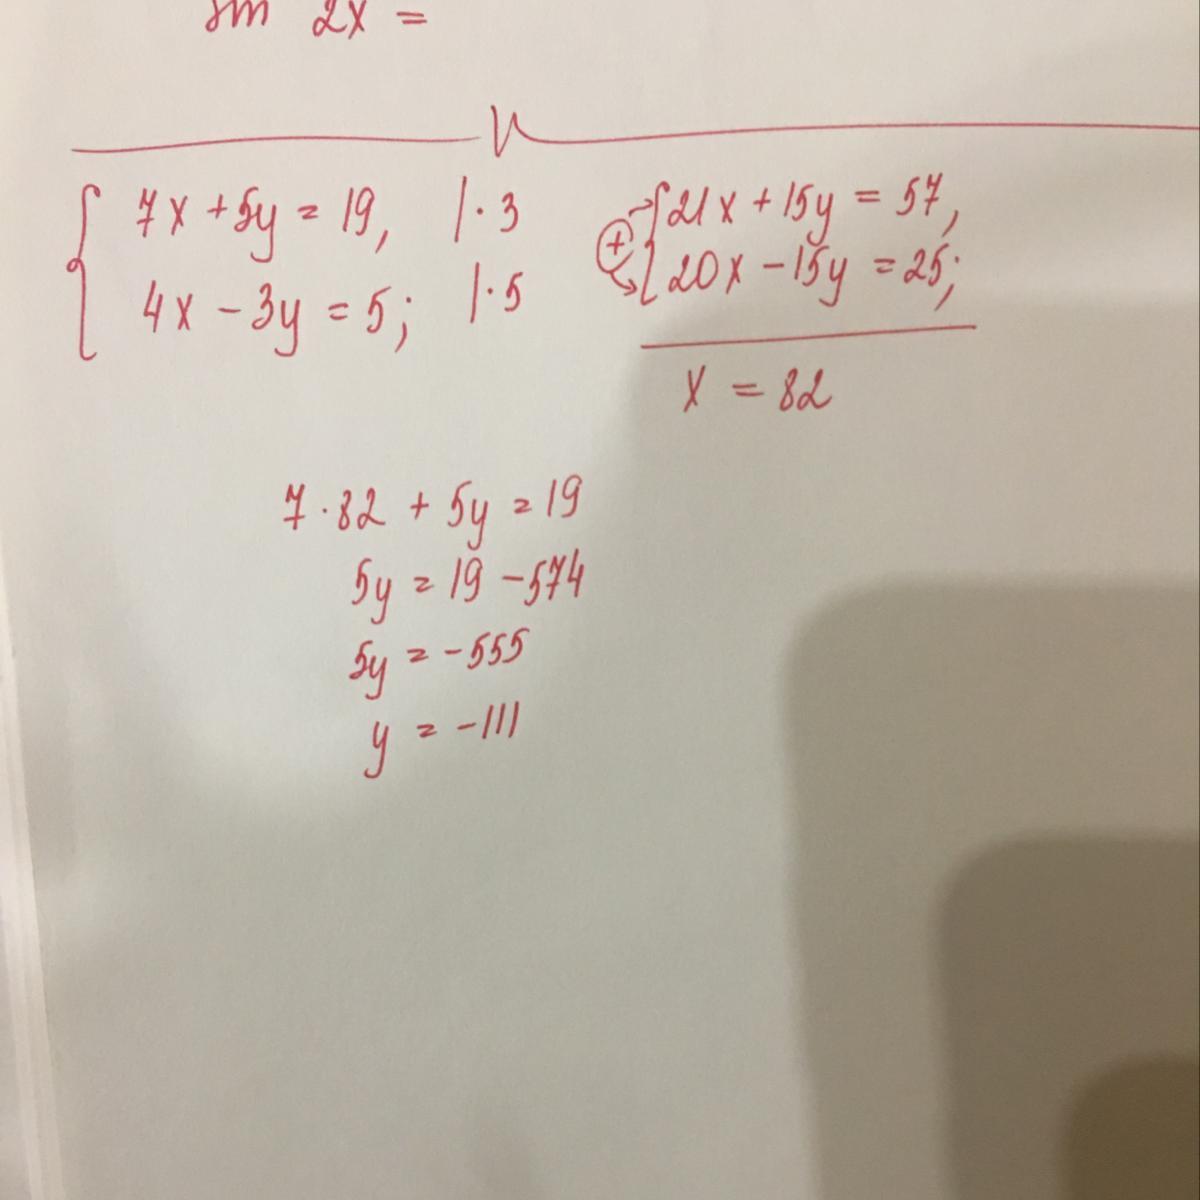 sin 2x =
7x + 5y = 19, | · 3
4x - 3y = 5; | · 5
+ 21x + 15y = 57,
20x - 15y = 25;
x = 82
7 · 82 + 5y = 19
5y = 19 - 574
5y = -555
y = -111